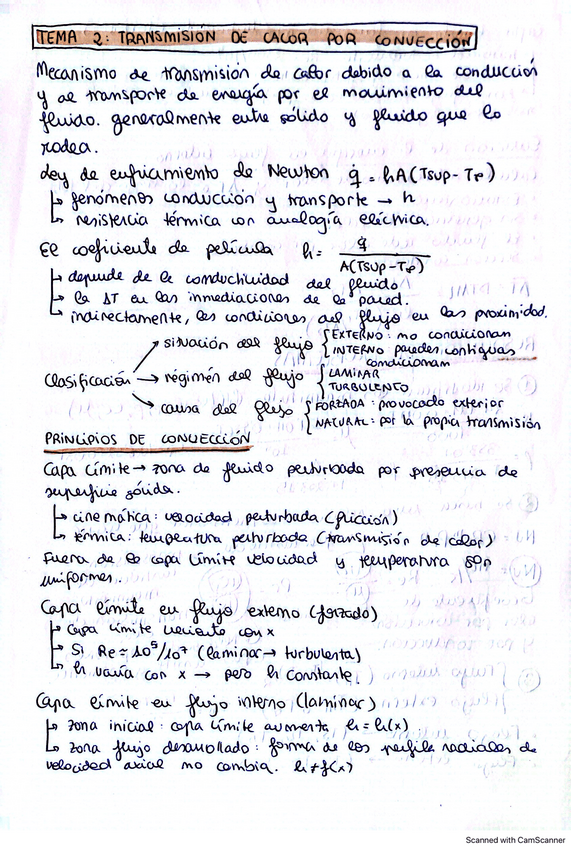 TEMA 2: TRANSMISIÓN DE CALOR POR CONVECCIÓN
Mecanismo de transmisión de calor debido a la conducción
y al transporte de energía por el movimiento del
fluido. generalmente entre sólido y fluido que lo
rodea.
Ley de enfriamiento de Newton q̇ = hA(Tsup-TF)
↳ fenómenos conducción y transporte → h
↳ resistencia térmica con analogía eléctrica.
El coeficiente de película h = q̇ / A(Tsup-TF)
↳ depende de la conductividad del fluido
↳ la ΔT en las inmediaciones de la pared.
↳ indirectamente, las condiciones del flujo en las proximidad.
Clasificación
→ situación del flujo { EXTERNO: no condicionan
INTERNO paredes contiguas
condicionam
→ régimen del flujo { LAMINAR
TURBULENTO
→ causa del flujo { FORZADA: provocado exterior
NATURAL: por la propia transmisión
PRINCIPIOS DE CONVECCIÓN
Capa límite → zona de fluido perturbada por presencia de
superficie sólida.
↳ cinemática: velocidad perturbada (fricción)
↳ térmica: temperatura perturbada (transmisión de calor)
Fuera de la capa límite velocidad y temperatura son
uniformes.
Capa límite en flujo externo (forzado)
↳ capa límite creciente con x
↳ Si Re ≃ 10⁵/10⁷ (laminar → turbulenta)
↳ h varía con x → pero h constante.
Capa límite en flujo interno (laminar)
↳ zona inicial: capa límite aumenta h = h(x)
↳ zona flujo desarrollado: forma de los perfiles radiales de
velocidad axial no cambia. h ≠ f(x)
Scanned with CamScanner